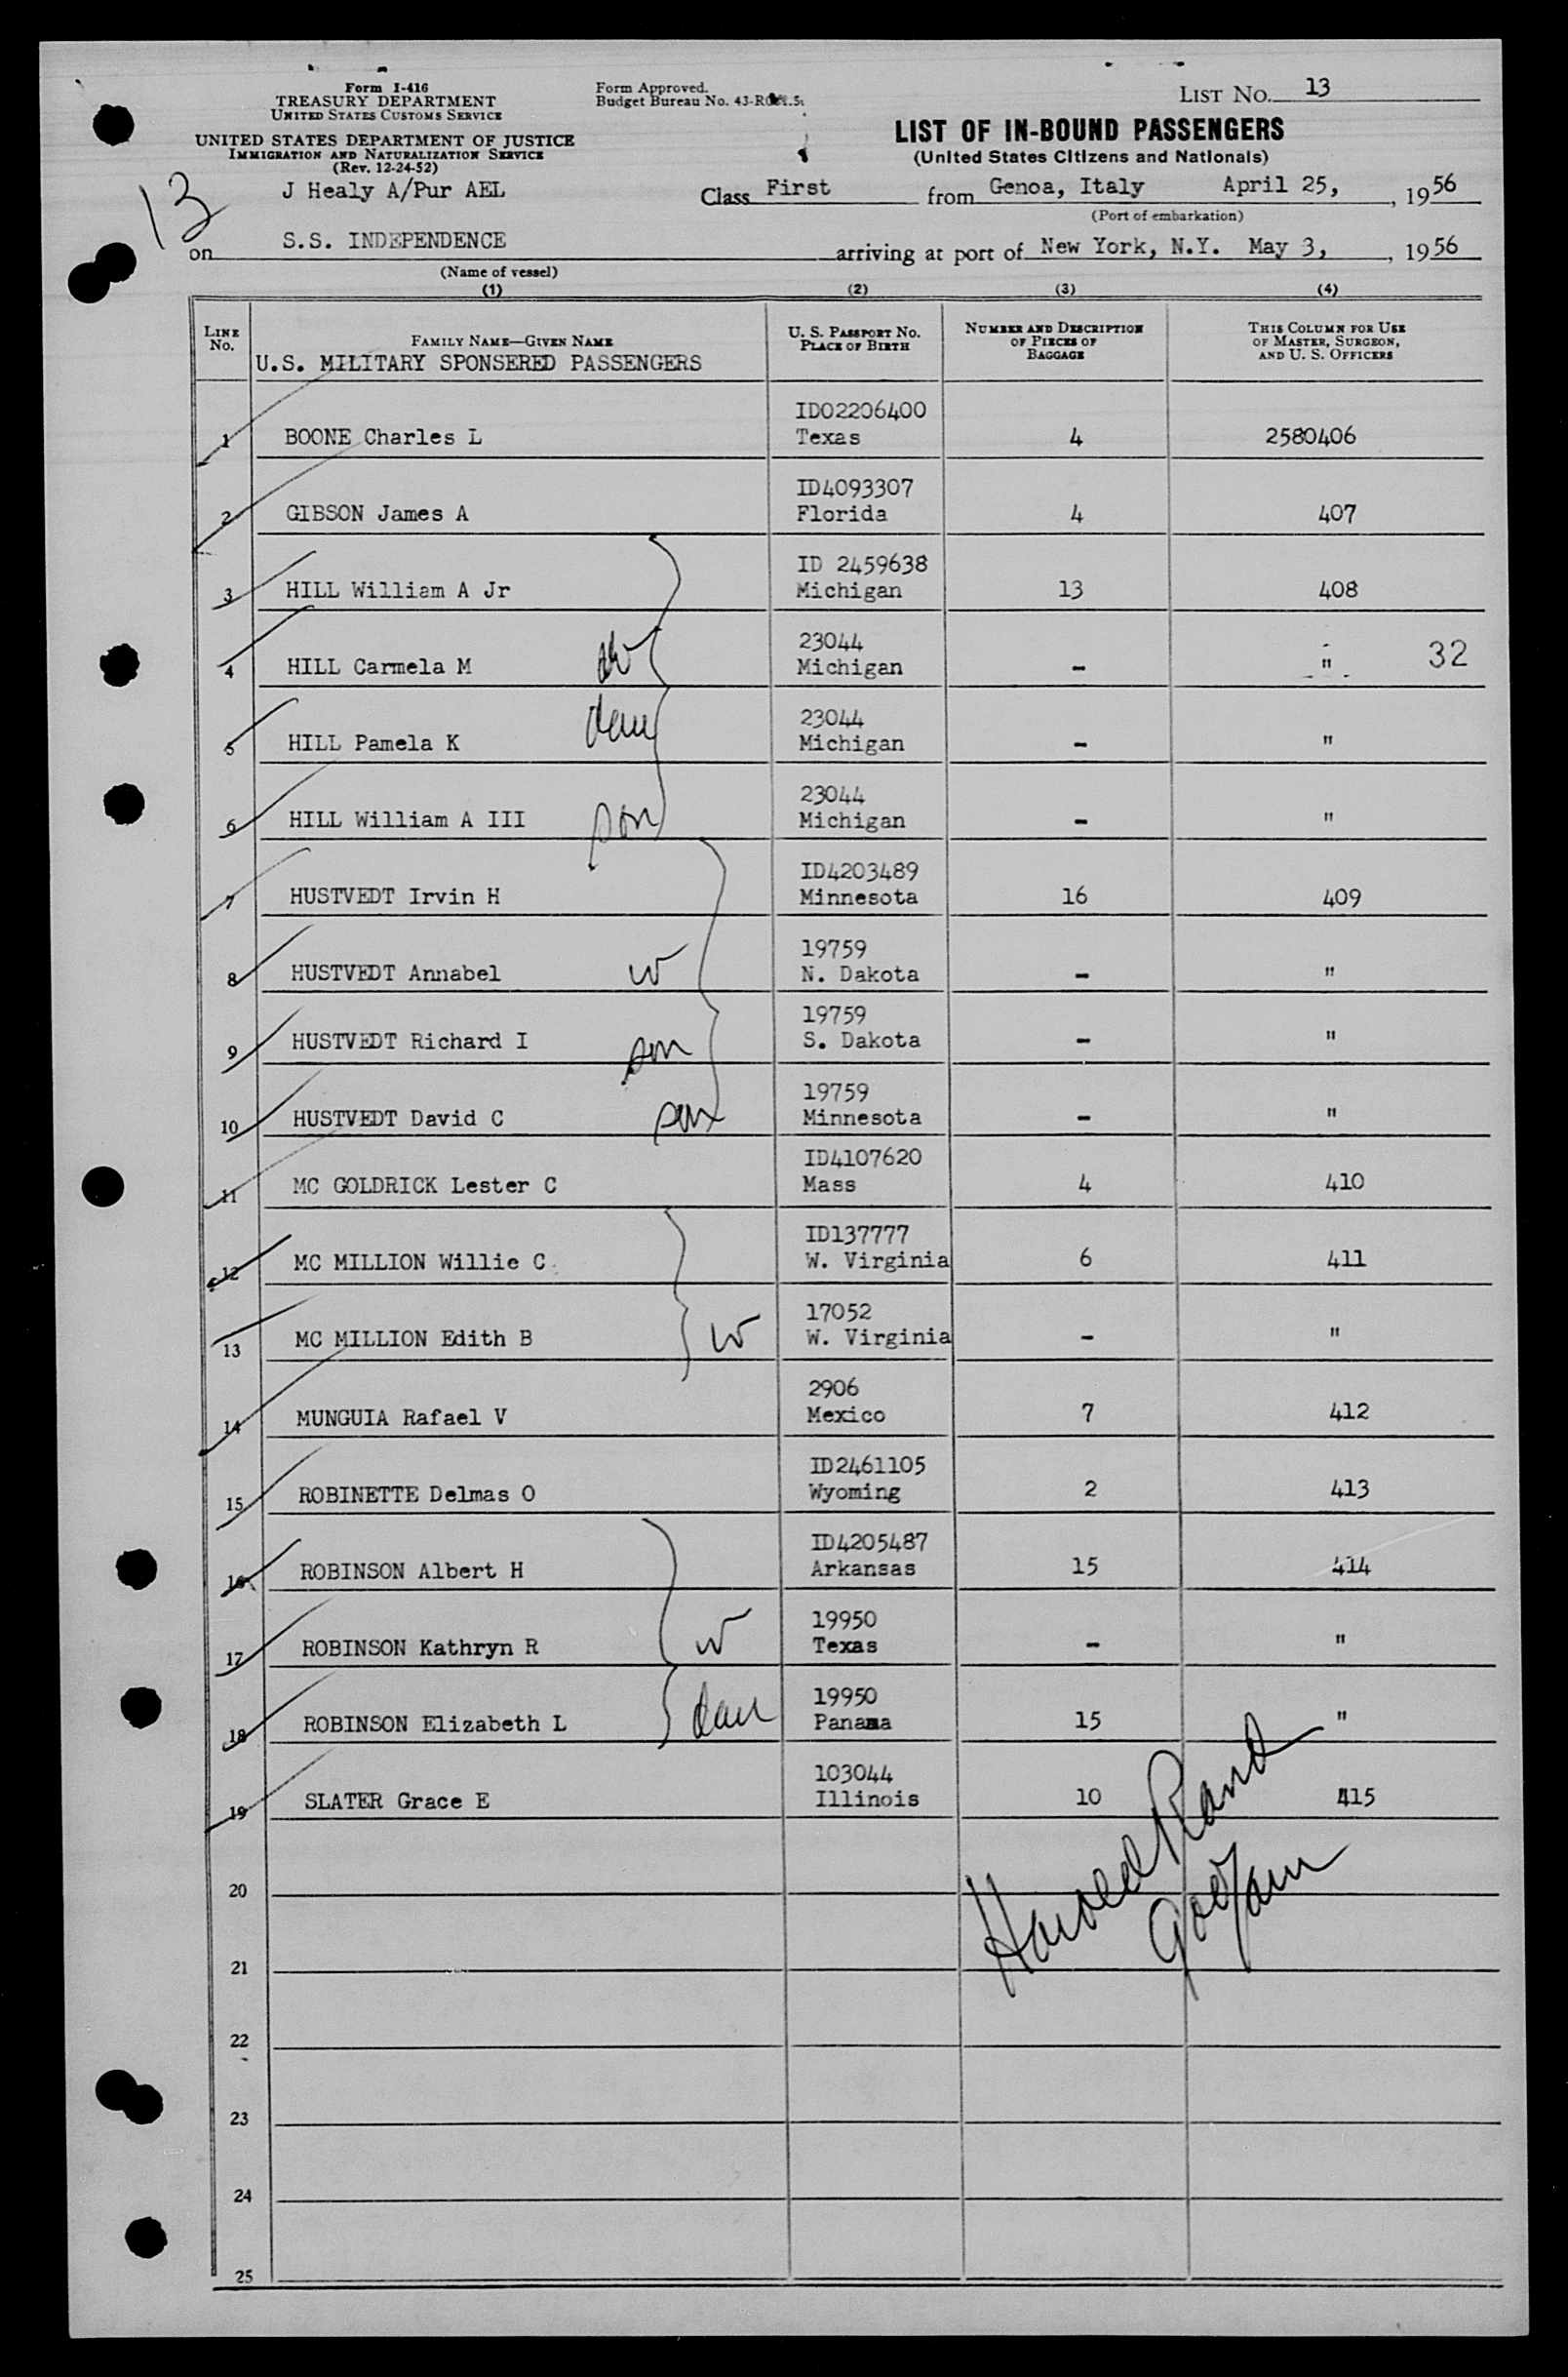 Form I-416
TREASURY DEPARTMENT
UNITED STATES CUSTOMS SERVICE
UNITED STATES DEPARTMENT OF JUSTICE
IMMIGRATION AND NATURALIZATION SERVICE
(Rev. 12-24-52)
Form Approved.
Budget Bureau No.
LIST NO. 13
LIST OF IN-BOUND PASSENGERS
(United States Citizens and Nationals)
13
J Healy A/Pur AEL
Class First from Genoa, Italy April 25, , 1956
(Port of embarkation)
on S.S. INDEPENDENCE arriving at port of New York, N.Y. May 3, , 1956
(Name of vessel)
(1) (2) (3) (4)
LINE NO.
FAMILY NAME—GIVEN NAME
U. S. PASSPORT NO.
PLACE OF BIRTH
NUMBER AND DESCRIPTION
OF PIECES OF
BAGGAGE
THIS COLUMN FOR USE
OF MASTER, SURGEON,
AND U. S. OFFICERS
U.S. MILITARY SPONSERED PASSENGERS
ID02206400
1 BOONE Charles L Texas 4 2580406
ID4093307
2 GIBSON James A Florida 4 407
ID 2459638
3 HILL William A Jr Michigan 13 408
23044
4 HILL Carmela M w Michigan - " 32
23044
5 HILL Pamela K dau Michigan - "
23044
6 HILL William A III son Michigan - "
ID4203489
7 HUSTVEDT Irvin H Minnesota 16 409
19759
8 HUSTVEDT Annabel w N. Dakota - "
19759
9 HUSTVEDT Richard I son S. Dakota - "
19759
10 HUSTVEDT David C son Minnesota - "
ID4107620
11 MC GOLDRICK Lester C Mass 4 410
ID137777
12 MC MILLION Willie C W. Virginia 6 411
17052
13 MC MILLION Edith B w W. Virginia - "
2906
14 MUNGUIA Rafael V Mexico 7 412
ID2461105
15 ROBINETTE Delmas O Wyoming 2 413
ID4205487
16 ROBINSON Albert H Arkansas 15 414
19950
17 ROBINSON Kathryn R w Texas - "
19950
18 ROBINSON Elizabeth L dau Panama 15 "
103044
19 SLATER Grace E Illinois 10 415
Harold Rand
20
21
22
23
24
25